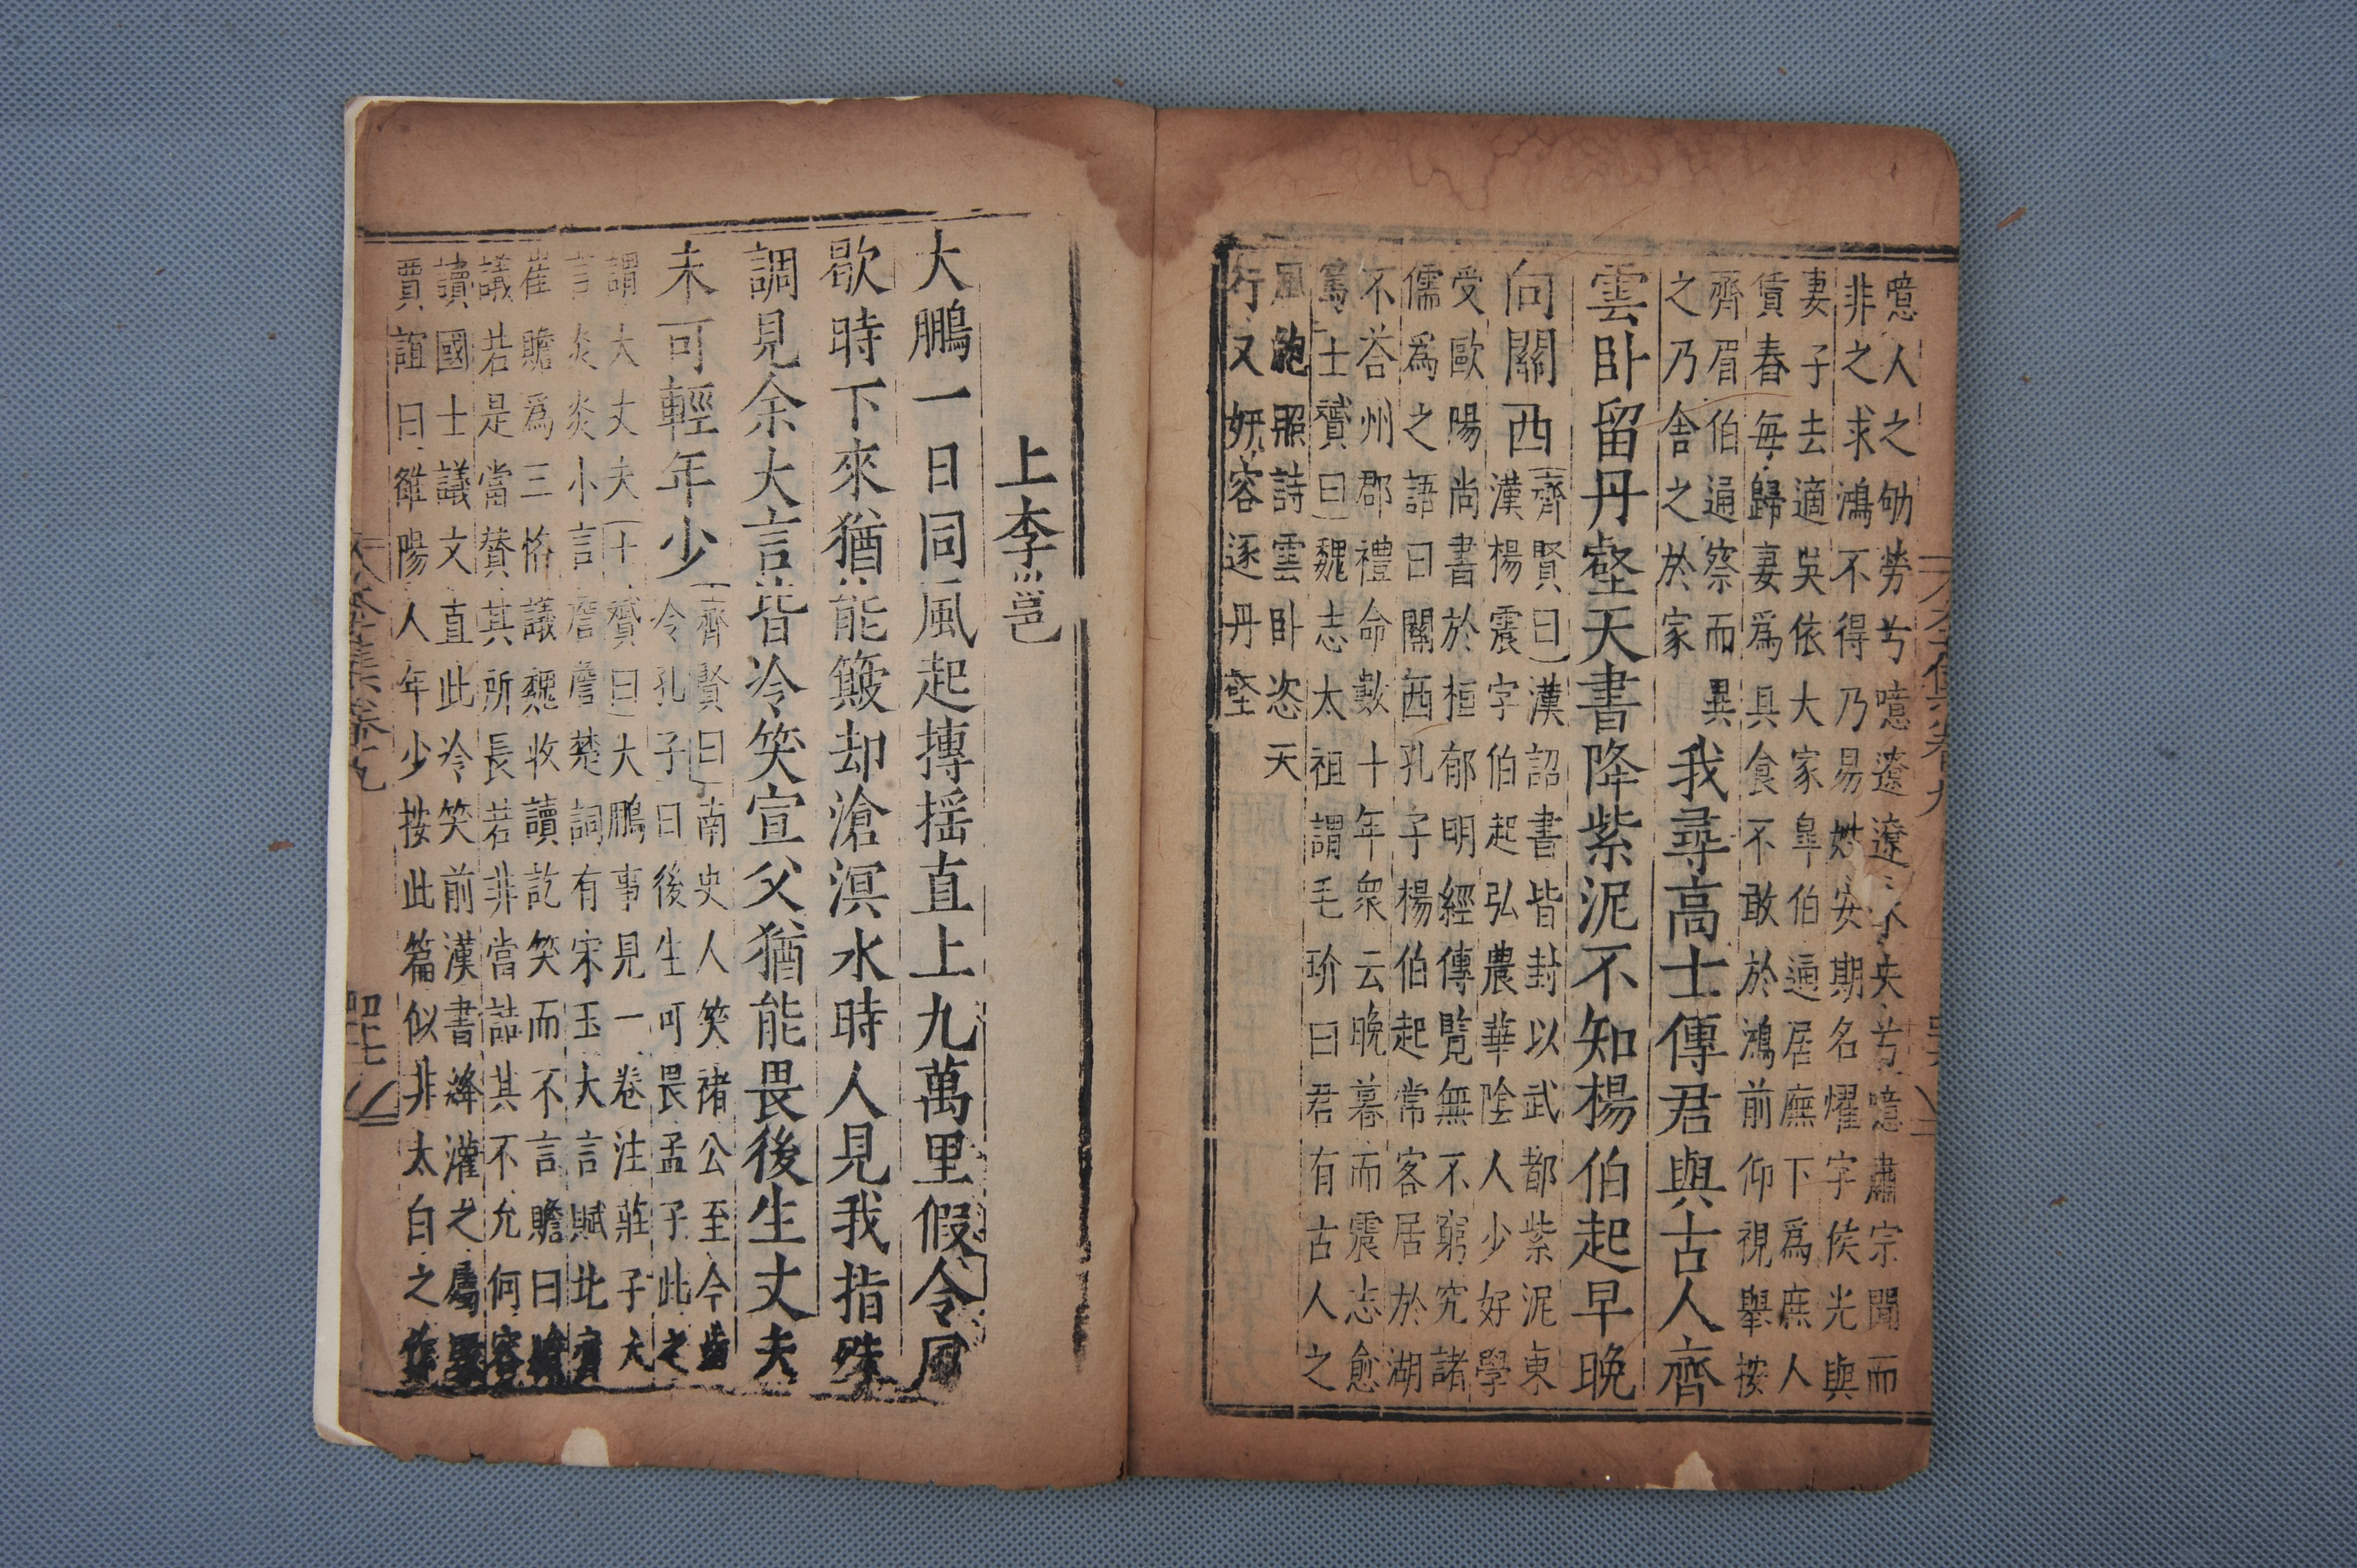 噫人之劬勞兮噫遼遼未央兮噫肅宗聞而
非之求鴻不得乃易姓安期名燿字侯光與
妻子去適吳依大家皐伯通居廡下爲庶人
賃舂每歸妻爲具食不敢於鴻前仰視舉按
齊眉伯通察而異
之乃舍之於家
我尋高士傳君與古人齊
雲卧留丹壑天書降紫泥不知楊伯起早晚
向關西
齊賢曰漢詔書皆封以武都紫泥東
漢楊震字伯起弘農華陰人少好學
受歐陽尚書於桓郁明經傳覽無不窮究諸
儒爲之語曰關西孔子楊伯起常客居於湖
不荅州郡禮命數十年衆云晚暮而震志愈
篤士贇曰魏志太祖謂毛玠曰君有古人之
風鮑照詩雲卧恣天
行又妍容逐丹壑
上李邕
大鵬一日同風起摶揺直上九萬里假令風
歇時下來猶能簸却滄溟水時人見我指殊
調見余大言皆冷笑宣父猶能畏後生丈夫
未可輕年少
齊賢曰南史人笑褚公至今齒
冷孔子曰後生可畏孟子此之
謂大丈夫士贇曰大鵬事見一卷注莊子大
言炎炎小言詹詹楚詞有宋玉大言賦北齊
崔瞻爲三恪議魏收讀訖笑而不言贍曰
議若是當賛其所長若非當詰其不允何容
讀國士議文直此冷笑前漢書絳灌之屬
賈誼曰雒陽人年少按此篇似非太白之作
太白集卷九